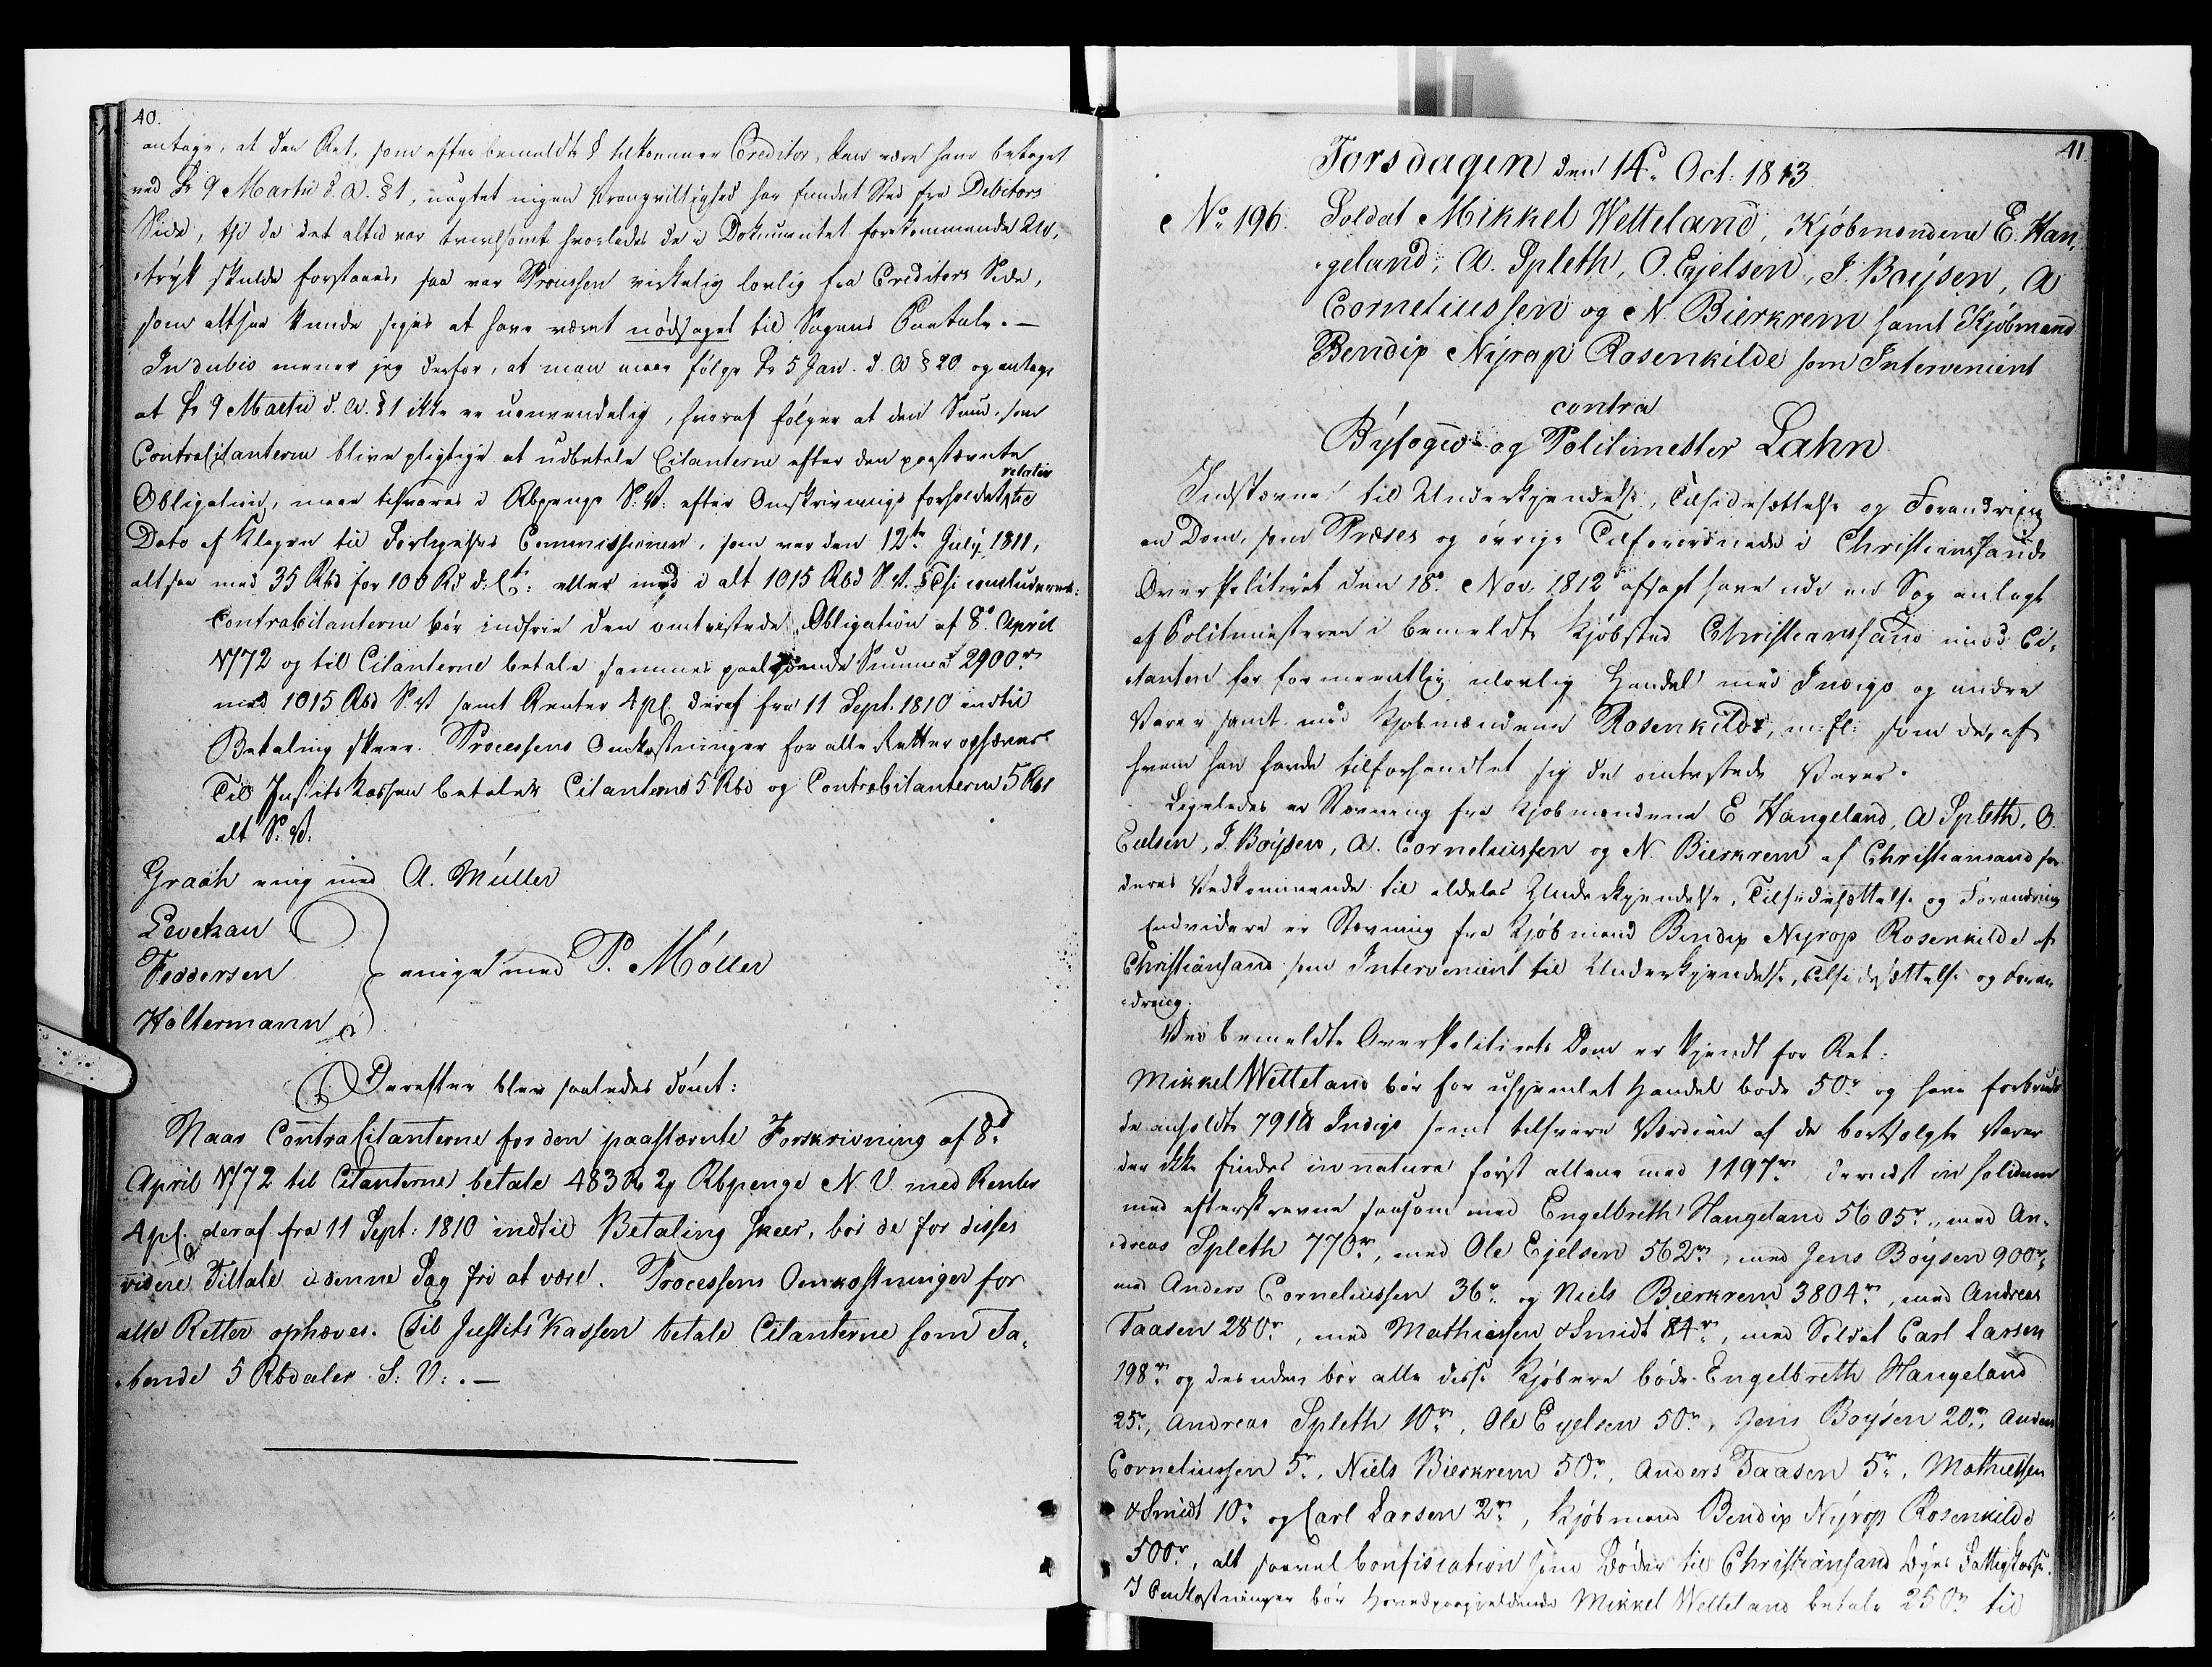 40.
antage, at den Ret, som efter bemeldte § tilkommer Creditor, kan være ham betaget
ved Fr 9 Martii d. A. § 1, uagtet ingen Vrangvillighed har fundet Sted fra Debitors
Side, thi da det altid var tvivlsomt hvorledes de i Dokumentet forekommende Ud-
tryk skulde forstaaes, saa var Processen virkelig lovlig fra Creditors Side,
som altsaa kunde siges at have været nödsaget til Sagens Paatale. —
In dubio mener jeg derfor, at man maae fölge Fr 5 Jan. d. A § 20 og antage
at Fr 9 Martii d. A. § 1 ikke er uanvendelig, hvoraf fölger at den Sum, som
Contracitanterne blive pligtige at udbetale Citanterne efter den paastævnte
Obligation, maae tilsvares i Rbpenge S. V. efter Omskrivnings forholdet relativ til
Dato af Klagen til Forligelses Commissionen, som var den 12te July 1811,
altsaa med 35 Rbd for 100 Rd d: Ct: eller med i alt 1015 Rbd S. V. Thi concluderes:
Contracitanterne bör indfrie den omtvistede Obligation af 8d April
1772 og til Citanterne betale sammes paalydende Summa 2900r
med 1015 Rbd S. V samt Renter 4 pC. deraf fra 11 Sept. 1810 indtil
Betaling skeer. Processens Omkostninger for alle Retter ophæves.
Til Justitskassen betaler Citanterne 5 Rbd og Contracitanterne 5 Rbd
alt S: V:
Graah enig med A. Müller
Levetzau
Feddersen } enige med P. Möller
Holtermann
Derefter blev saaledes dömt:
Naar Contracitanterne for den paastævnte Forskrivning af 8d
April 1772 til Citanterne betale 483 Rd 2 Rbpenge N. V. med Renter
4 pC. deraf fra 11 Sept: 1810 indtil Betaling skeer, bör de for disses
videre Tiltale i denne Sag frie at være. Processens Omkostninger for
alle Retter ophæves. Til Justits Kassen betale Citanterne som Ta-
bende 5 Rbdaler S: V: . —
41.
Torsdagen den 14d Oct: 1813
No 196. Soldat Mikkel Wetteland, Kjöbmændene E. Han-
geland, A. Spleth, O. Egelsen, J. Boÿsen, A
Corneliussen og N. Bierkrem samt Kjöbmand
Bendix Nÿrop Rosenkilde som Intervenient
contra
Bÿfoged og Politimester Lahn
Indstævnet til Underkjendelse, Tilsidesættelse og Forandring
en Dom, som Præses og övrige Tilforordnede i Christianssands
Overpolitiret den 18d Nov. 1812 afsagt have udi en Sag anlagt
af Politimesteren i bemeldte Kjöbsted Christianssand imod Ci-
tanten for formeentlig ulovlig Handel med Indigo og andre
Varer samt mod Kjöbmændene Rosenkilde, m: fl: som de, af
hvem han havde tilforhandlet sig de omtvistede Varer.
Ligeledes er Stævning fra Kjöbmændene E Hangeland, A Spleth, O.
Eielsen, J. Boÿsen, A. Corneliussen og N. Bierkrem af Christiansand for
deres Vedkommende til aldeles Underkjendelse, Tilsidesættelse og Forandring
Endvidere er Stævning fra Kjöbmand Bendix Nÿrop Rosenkilde af
Christiansand som Intervenient til Underkjendelse, Tilsidesættelse og Foran-
dring.
Ved bemeldte Overpolitirets Dom er kjendt for Ret:
Mikkel Wetteland bör for uhjemlet Handel bode 50r og have forbrudt
de anholdte 791 ℔ Indigo samt tilsvare Værdien af de bortsolgte Varer
der ikke findes in natura först allene med 1197r dernæst in solidum
med efterskrevne saasom med Engelbreth Hangeland 5605r, med An-
dreas Spleth 770r, med Ole Ejelsen 562r, med Jens Boÿsen 900r,
med Anders Corneliussen 36r og Niels Bierkrem 3804r, med Andreas
Taasen 280r, med Mathiassen & Smidt 84r, med Soldat Carl Larsen
198r og desuden bör alle disse Kjöbere böde Engelbreth Hangeland
25r, Andreas Spleth 10r, Ole Egelsen 50r, Jens Boÿsen 20r, Anders
Corneliussen 5r, Niels Bierkrem 50r, Anders Taasen 5r, Mathiessen
& Smidt 10r og Carl Larsen 2r, Kjöbmand Bendix Nÿrop Rosenkilde
500r, alt saavel Confiscation som Böder til Christiansand Byes Fattigkasse.
I Omkostninger bör Hovedpaagjeldende Mikkel Wetteland betale 250r til